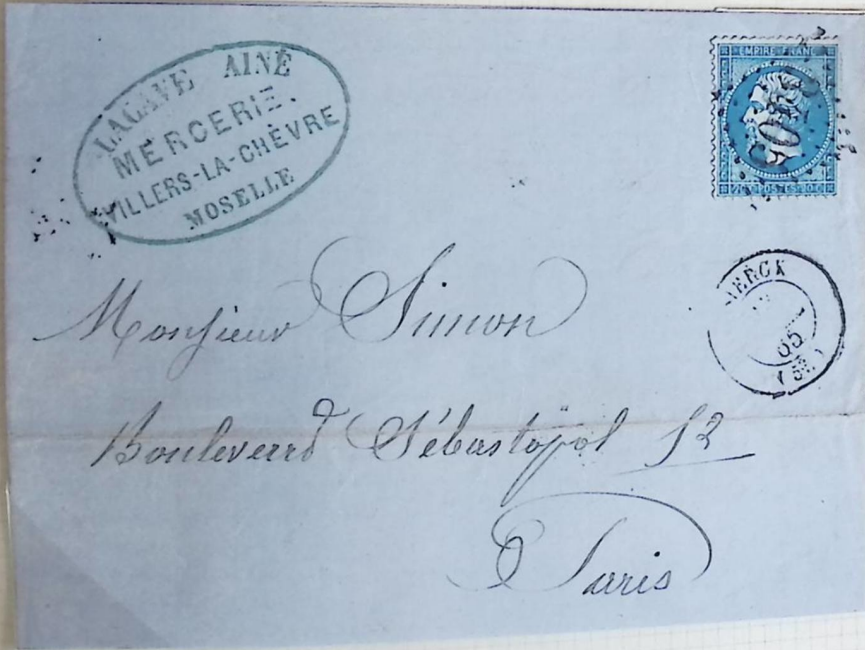 LACAVE AINÉ
MERCERIE.
VILLERS-LA-CHÈVRE
MOSELLE
EMPIRE FRANC
20 C POSTES 20 C
IERCK
65
Monsieur Simon
Boulevard Sébastopol 52
Paris